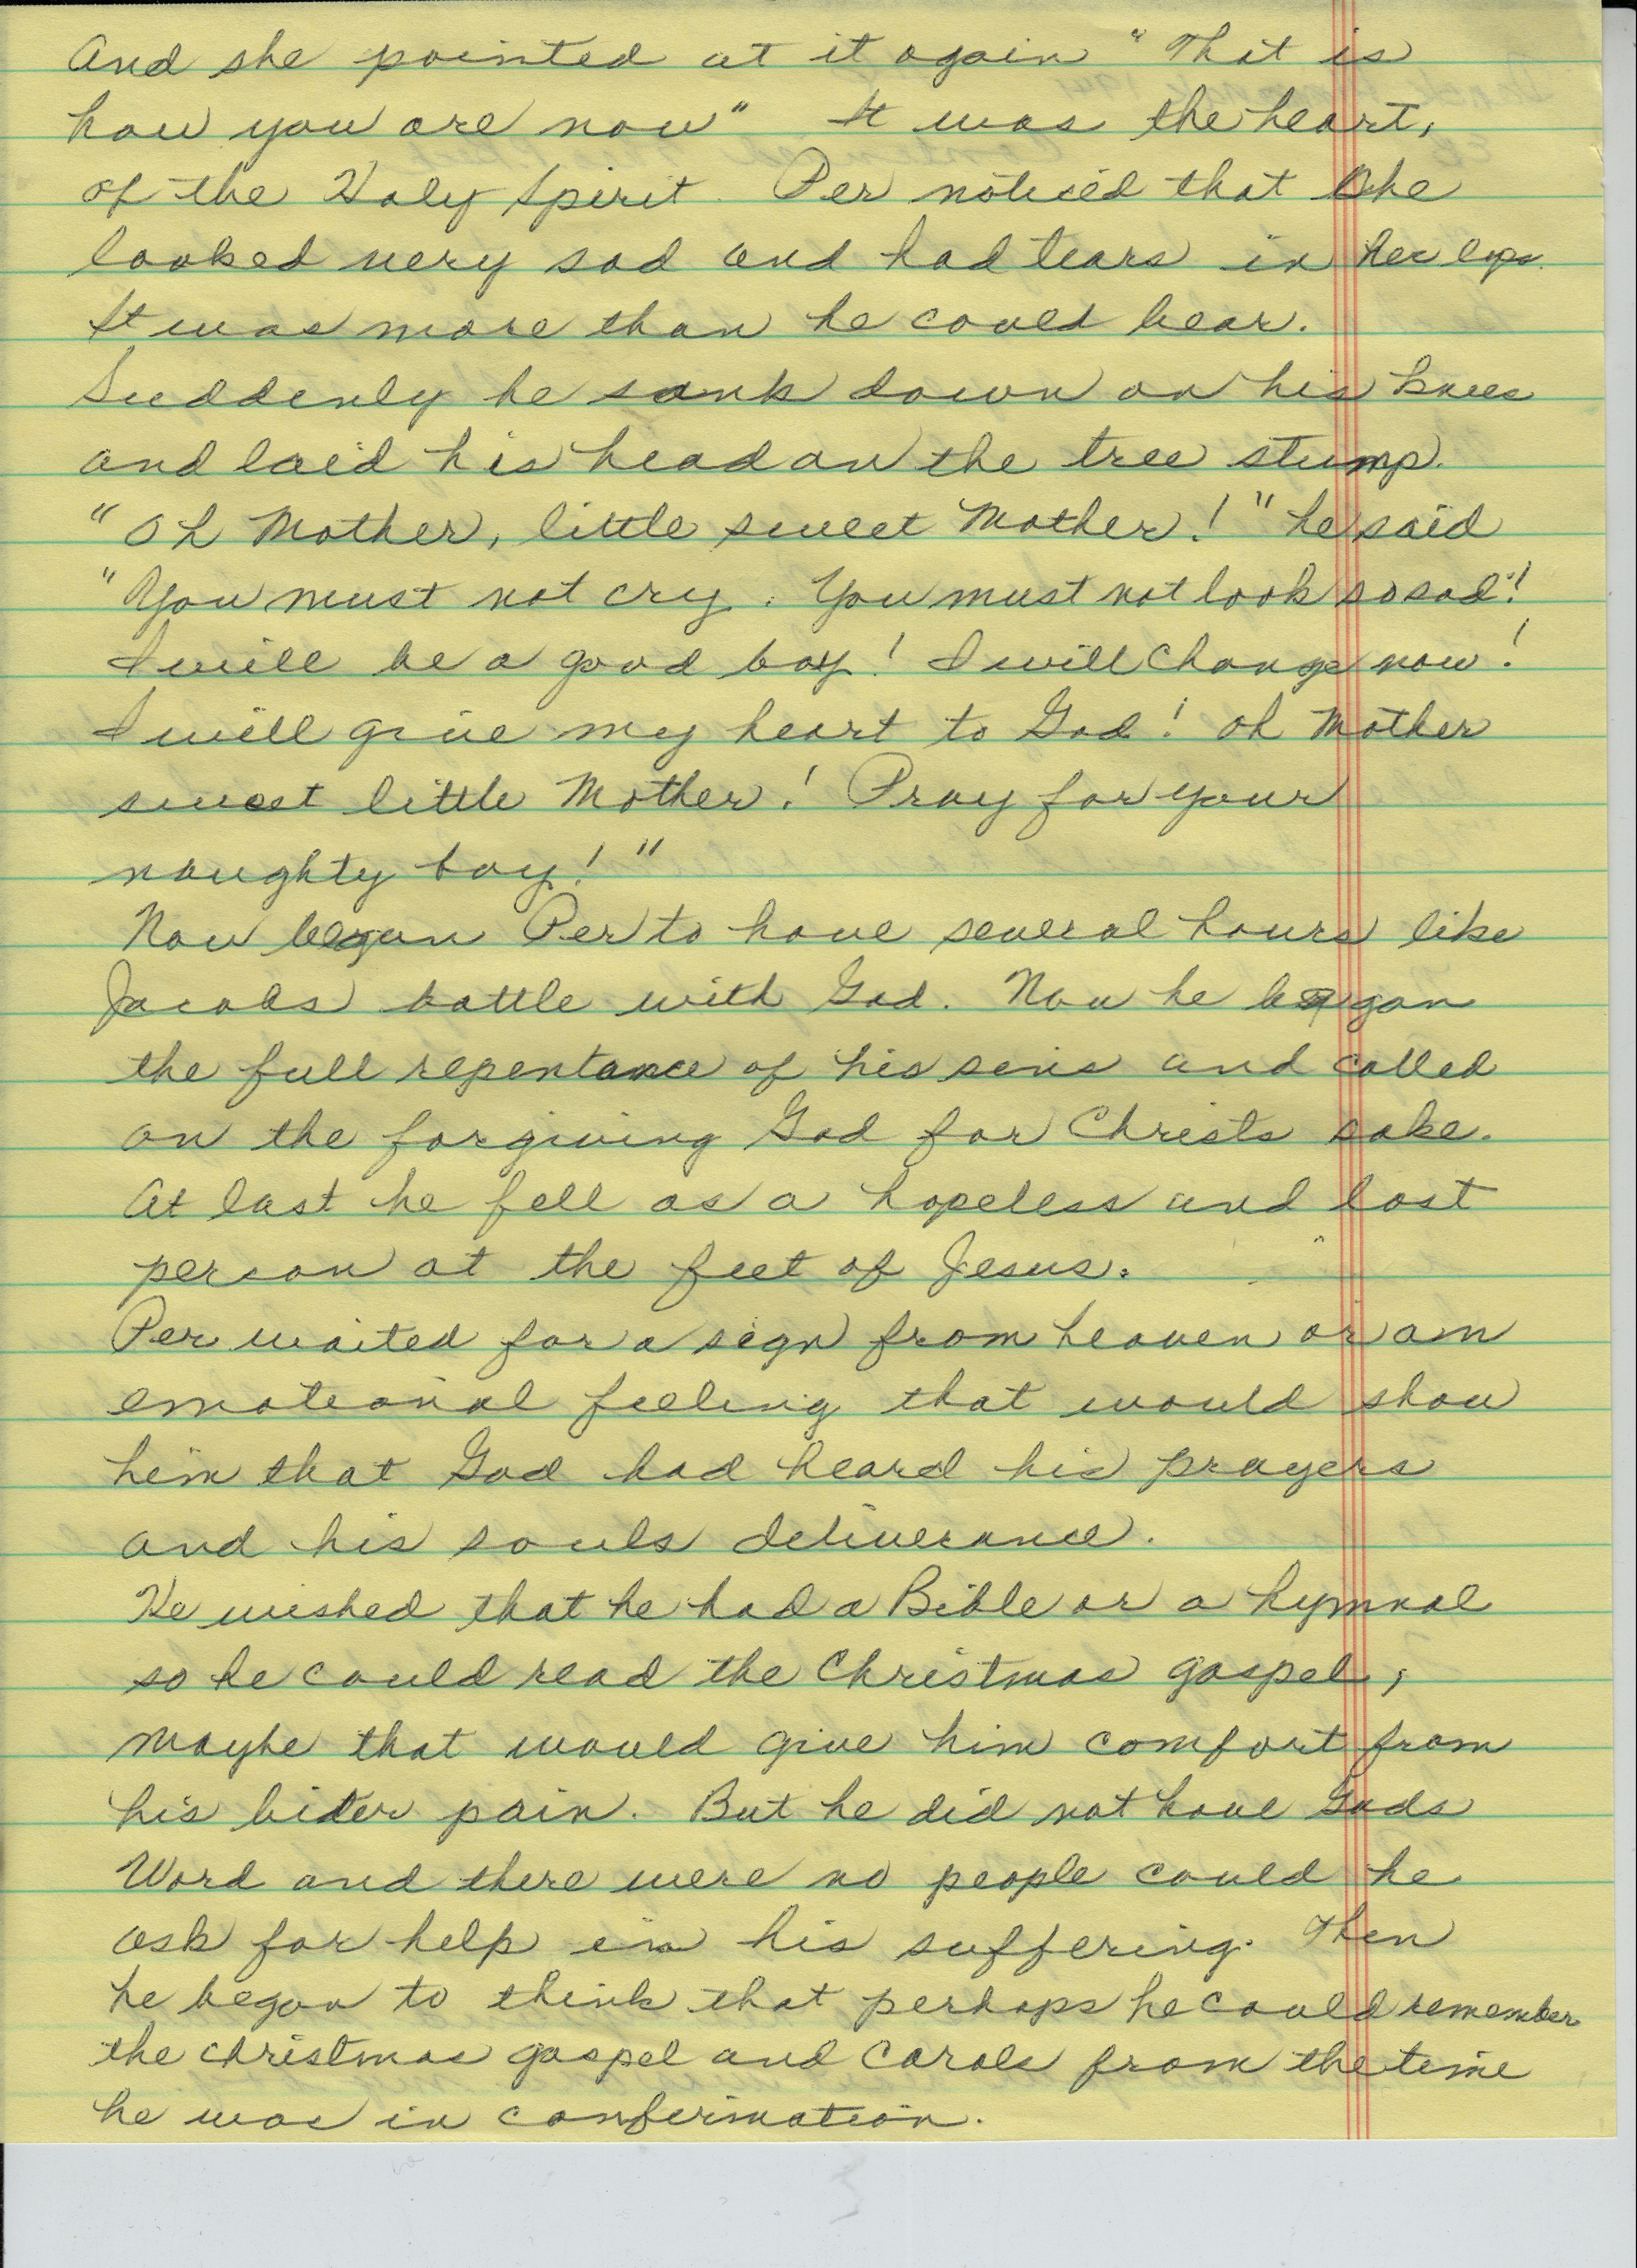 And she pointed at it again "That is
how you are now" It was the heart,
of the Holy Spirit. Per noticed that she
looked very sad and had tears in her eyes.
It was more than he could bear.
Suddenly he sank down on his knees
and laid his head on the tree stump.
"Oh Mother, little sweet Mother!" he said
"You must not cry. You must not look so sad"!
I will be a good boy! I will change now!
I will give my heart to God! Oh Mother
sweet little Mother! Pray for your
naughty boy!"
Now began Per to have several hours like
Jacobs battle with God. Now he began
the full repentance of his sins and called
on the forgiving God for Christs sake.
At last he fell as a hopeless and lost
person at the feet of Jesus.
Per waited for a sign from heaven or an
emotional feeling that would show
him that God had heard his prayers
and his souls deliverance.
He wished that he had a Bible or a hymnal
so he could read the Christmas gospel,
maybe that would give him comfort from
his bitter pain. But he did not have Gods
Word and there were no people could he
ask for help in his suffering. Then
he began to think that perhaps he could remember
the christmas gospel and carols from the time
he was in confirmation.